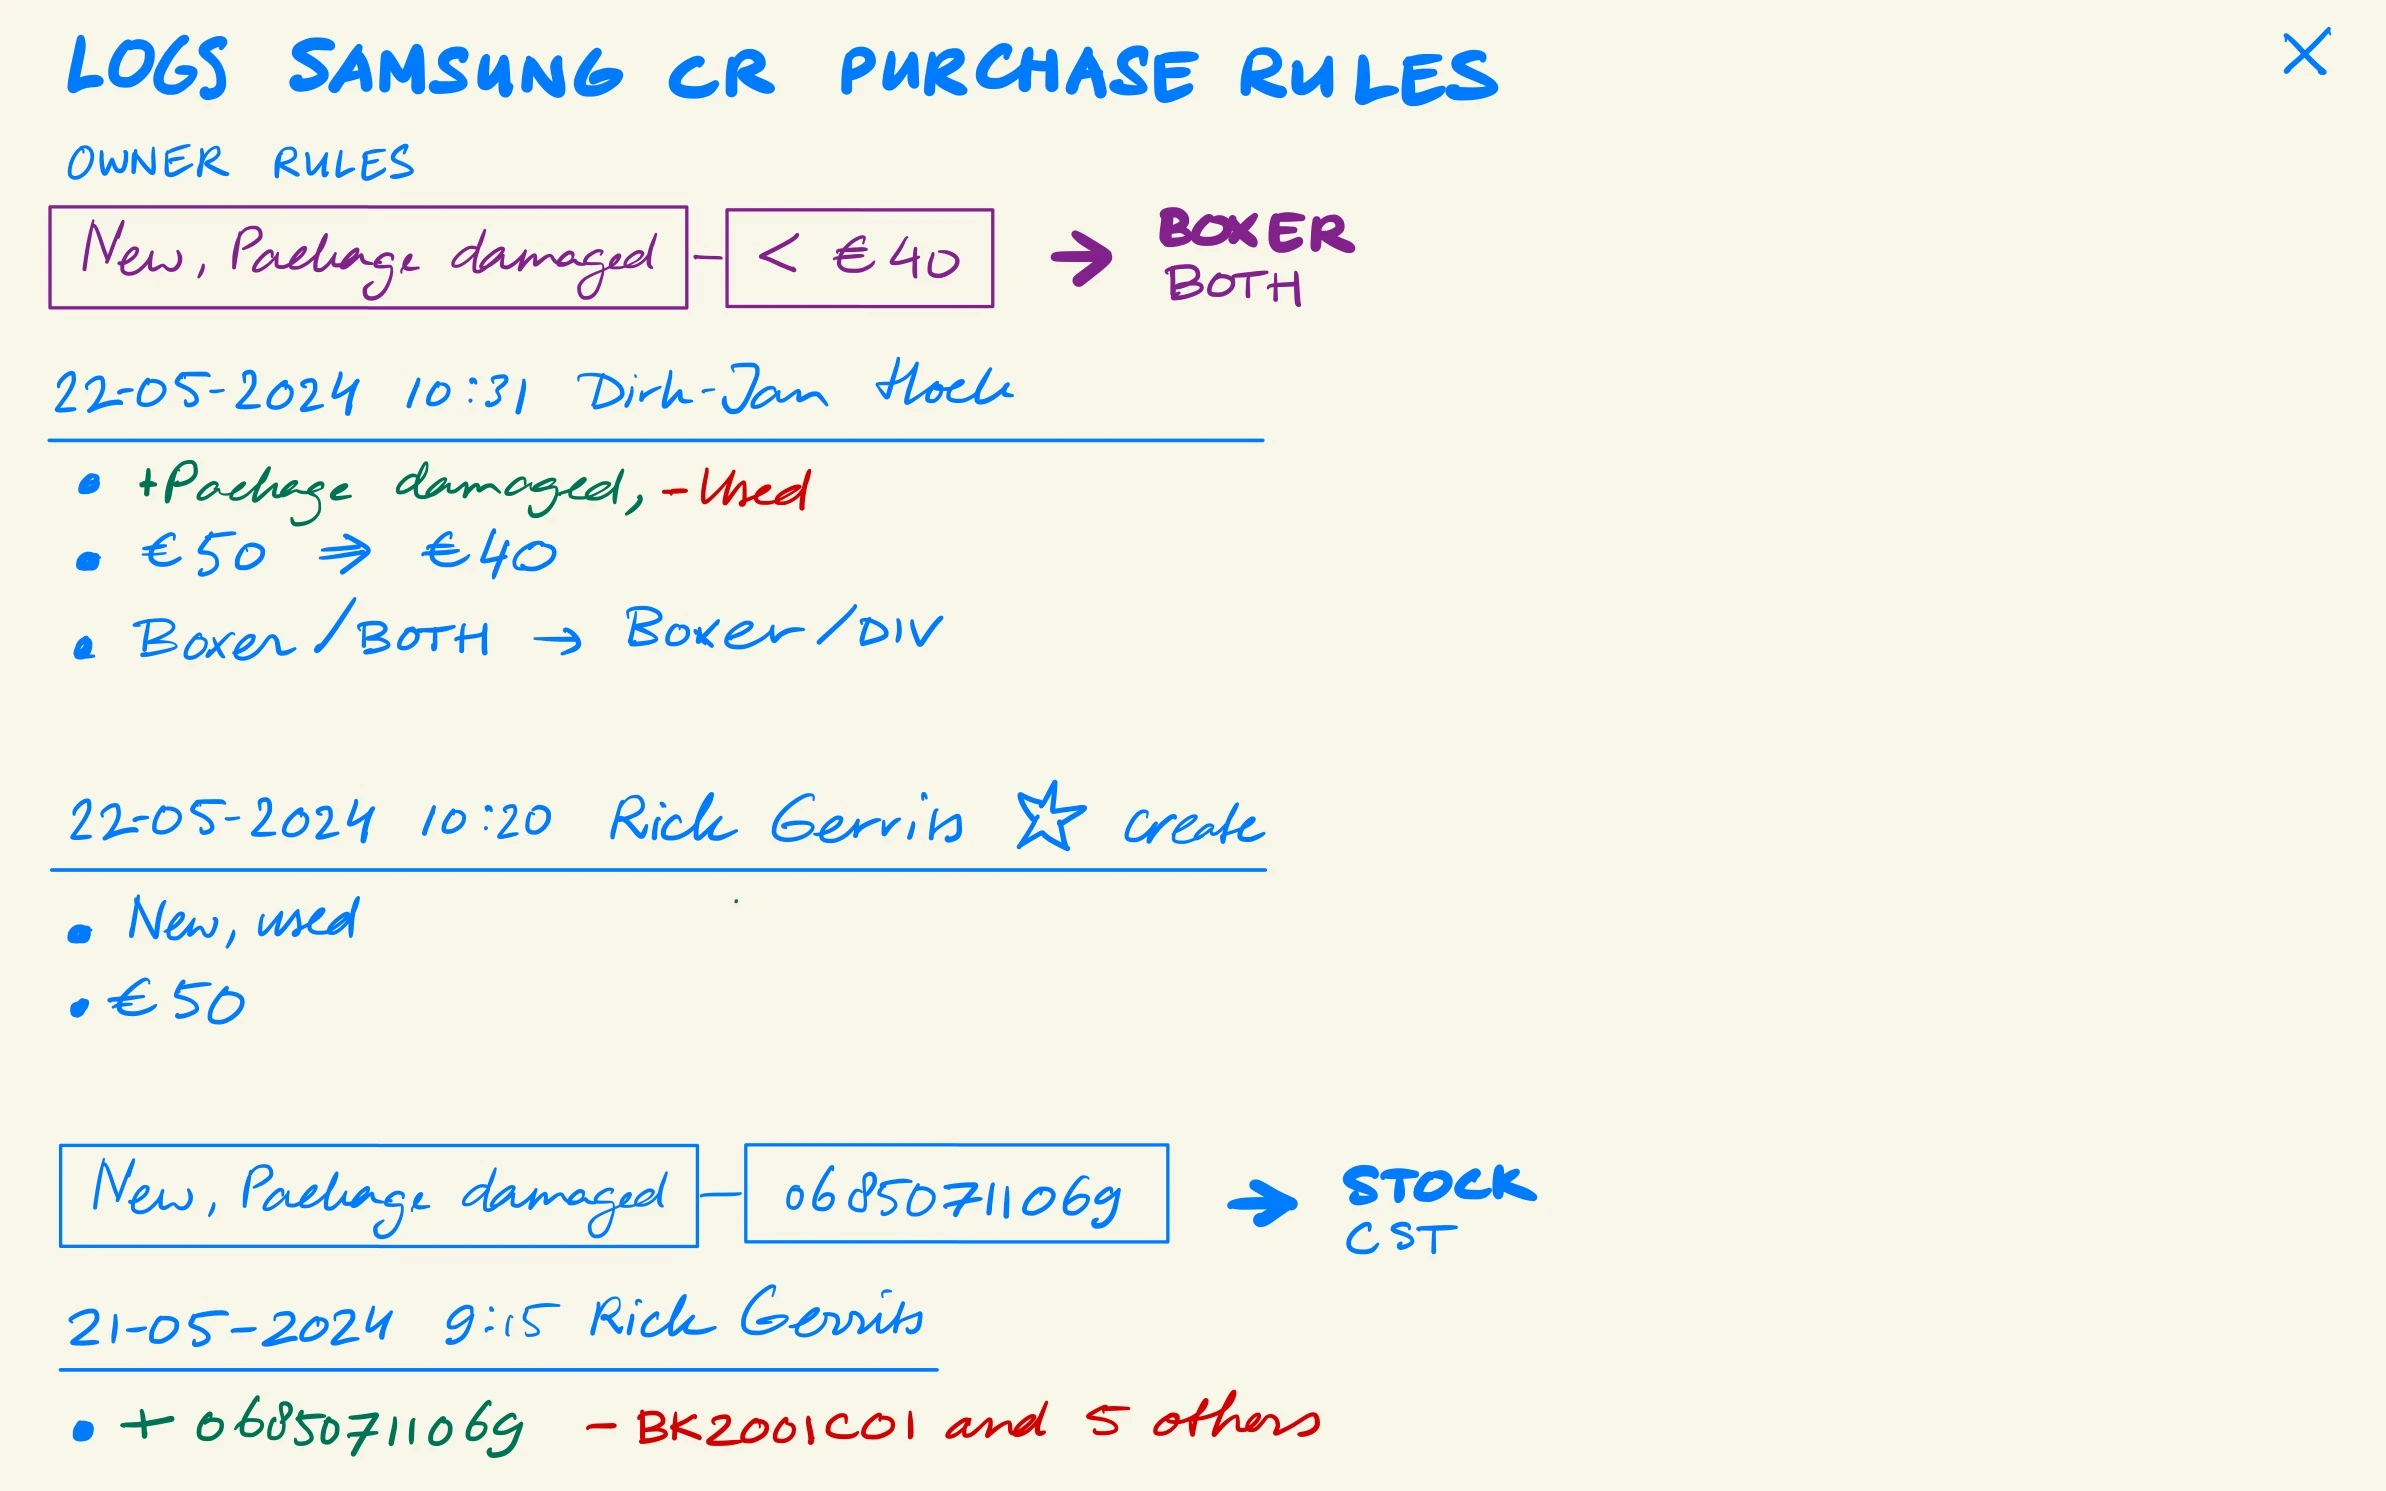 LOGS SAMSUNG CR PURCHASE RULES X
OWNER RULES
New, Package damaged - < €40 → BOXER
BOTH
22-05-2024 10:31 Dirk-Jan Hoek
• +Package damaged, -Used
• €50 ⇒ €40
• Boxer/BOTH → Boxer/DIV
22-05-2024 10:20 Rick Gerrits ☆ create
• New, used
• €50
New, Package damaged - 06850711069 → STOCK
CST
21-05-2024 9:15 Rick Gerrits
• + 06850711069 - BK2001C01 and 5 others